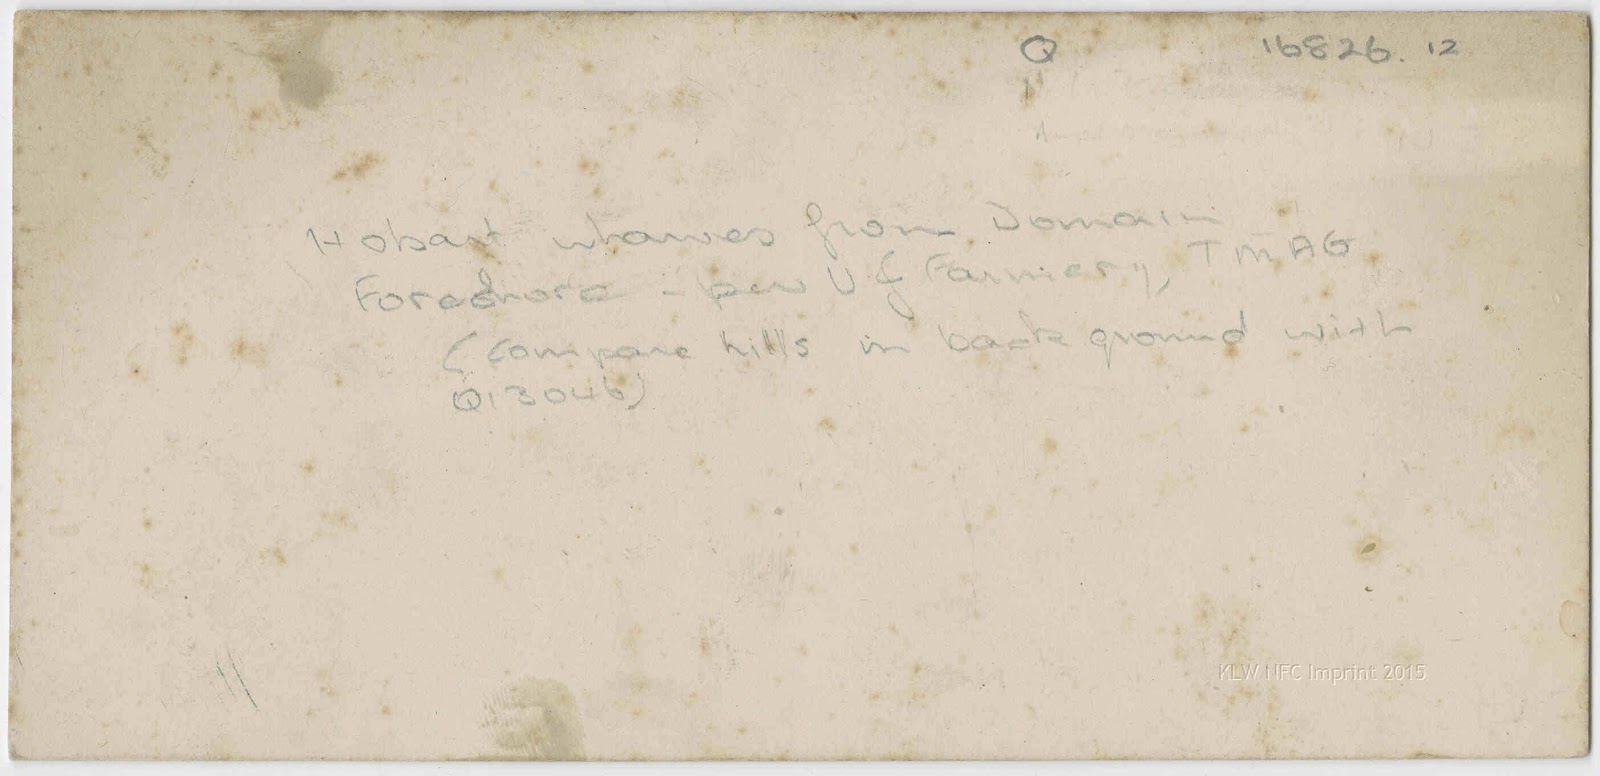 Q 16826.12
Hobart wharves from Domain
Foreshore - per V G Farmery, TMAG
(Compare hills in background with
Q13046)
KLW NFC Imprint 2015